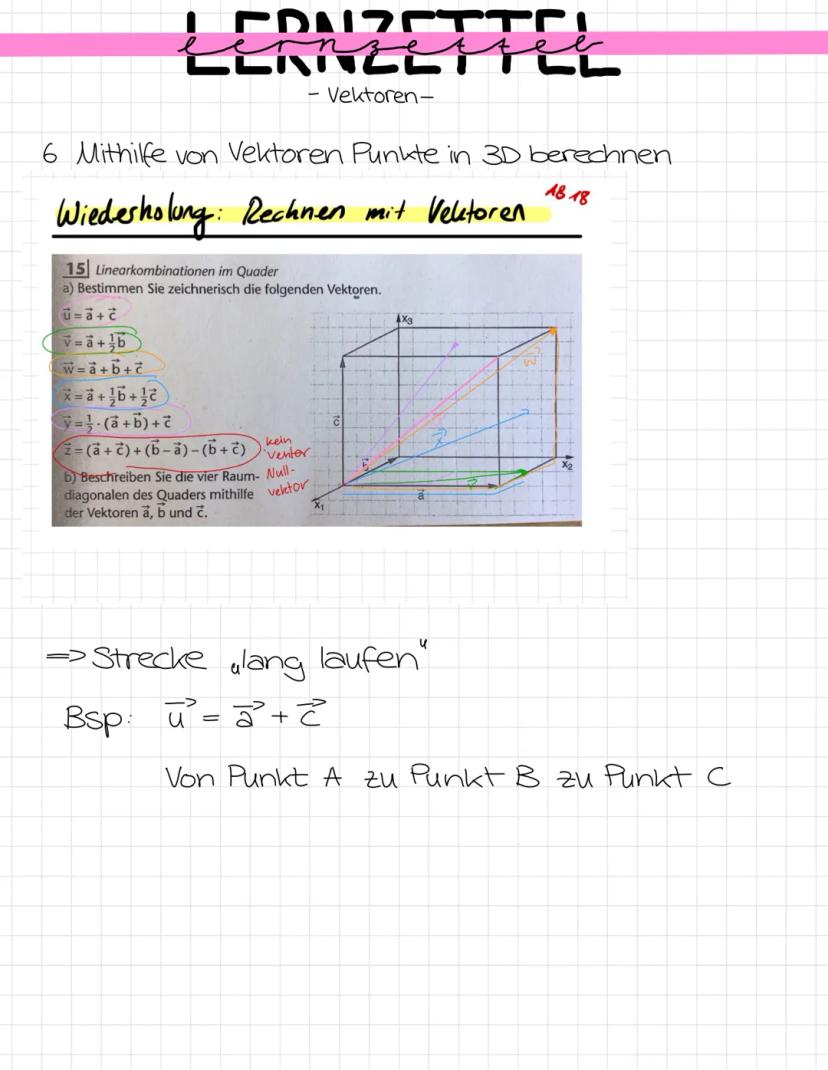 LERNZETTEL
lernzettel
- Vektoren-
6 Mithilfe von Vektoren Punkte in 3D berechnen
Wiederholung: Rechnen mit Vektoren
AB 18
15 Linearkombinationen im Quader
a) Bestimmen Sie zeichnerisch die folgenden Vektoren.
u⃗ = a⃗ + c⃗
v⃗ = a⃗ + ½b⃗
w⃗ = a⃗ + b⃗ + c⃗
x⃗ = a⃗ + ½b⃗ + ½c⃗
y⃗ = ½ · (a⃗ + b⃗) + c⃗
z⃗ = (a⃗ + c⃗) + (b⃗ − a⃗) − (b⃗ + c⃗)
kein
Null-
vektor
b) Beschreiben Sie die vier Raum-
diagonalen des Quaders mithilfe
der Vektoren a⃗, b⃗ und c⃗.
x₃
w⃗
c⃗
x⃗
b⃗
x₂
v⃗
a⃗
x₁
=> Strecke „lang laufen"
Bsp: u⃗ = a⃗ + c⃗
Von Punkt A zu Punkt B zu Punkt C